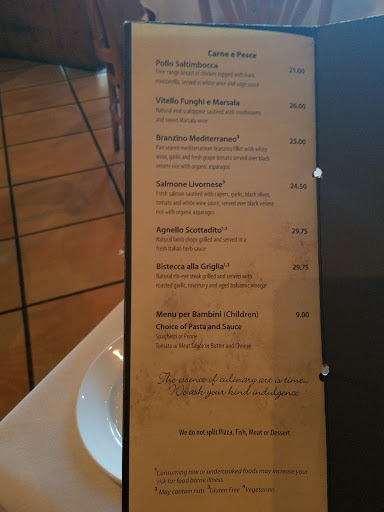 Carne e Pesce
Pollo Saltimbocca 21.00
Free range breast of chicken topped with ham,
mozzarella, served in white wine and sage sauce
Vitello Funghi e Marsala 26.00
Natural veal scaloppine sauteed with mushrooms
and sweet Marsala wine
Branzino Mediterraneo³ 25.00
Pan seared mediterranean branzino fillet with white
wine, garlic and fresh grape tomato served over black
venere rice with organic asparagus
Salmone Livornese³ 24.50
Fresh salmon sauteed with capers, garlic, black olives,
tomato and white wine sauce, served over black venere
rice with organic asparagus
Agnello Scottadito¹·³ 29.75
Natural lamb chops grilled and served in a
fresh Italian herb sauce
Bistecca alla Griglia¹·³ 29.75
Natural rib-eye steak grilled and served with
roasted garlic, rosemary and aged balsamic vinegar
Menu per Bambini (Children) 9.00
Choice of Pasta and Sauce
Spaghetti or Penne
Tomato or Meat Sauce or Butter and Cheese
The essence of culinary art is time...
We ask your kind indulgence
We do not split Pizza, Fish, Meat or Dessert
¹Consuming raw or undercooked foods may increase your
risk for food borne illness.
² May contain nuts ³Gluten Free ⁴Vegetarian